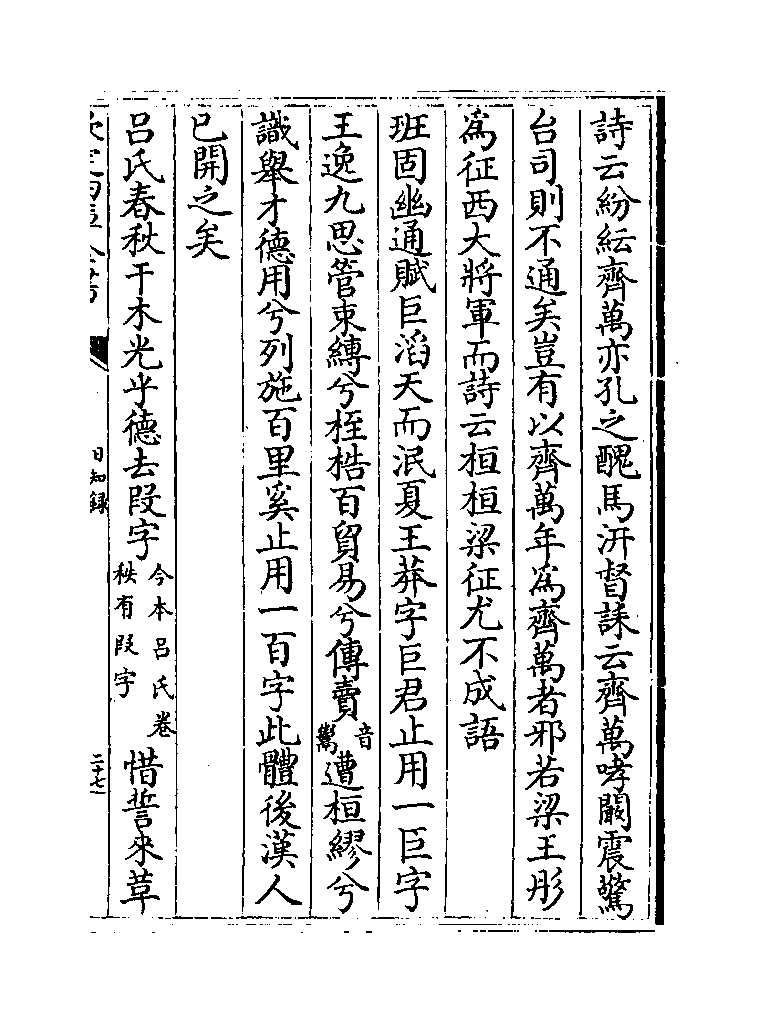 詩云紛紜齊萬亦孔之醜馬汧督誄云齊萬哮闞震驚
台司則不通矣豈有以齊萬年為齊萬者邪若梁王肜
為征西大將軍而詩云桓桓梁征尤不成語
班固幽通賦巨滔天而泯夏王莽字巨君止用一巨字
王逸九思管束縛兮桎梏百貿易兮傳賣音鬻遭桓繆兮
識舉才德用兮列施百里奚止用一百字此體後漢人
已開之矣
呂氏春秋干木光乎德去段字今本呂氏卷秩有段字惜誓來草
日知録
二十七